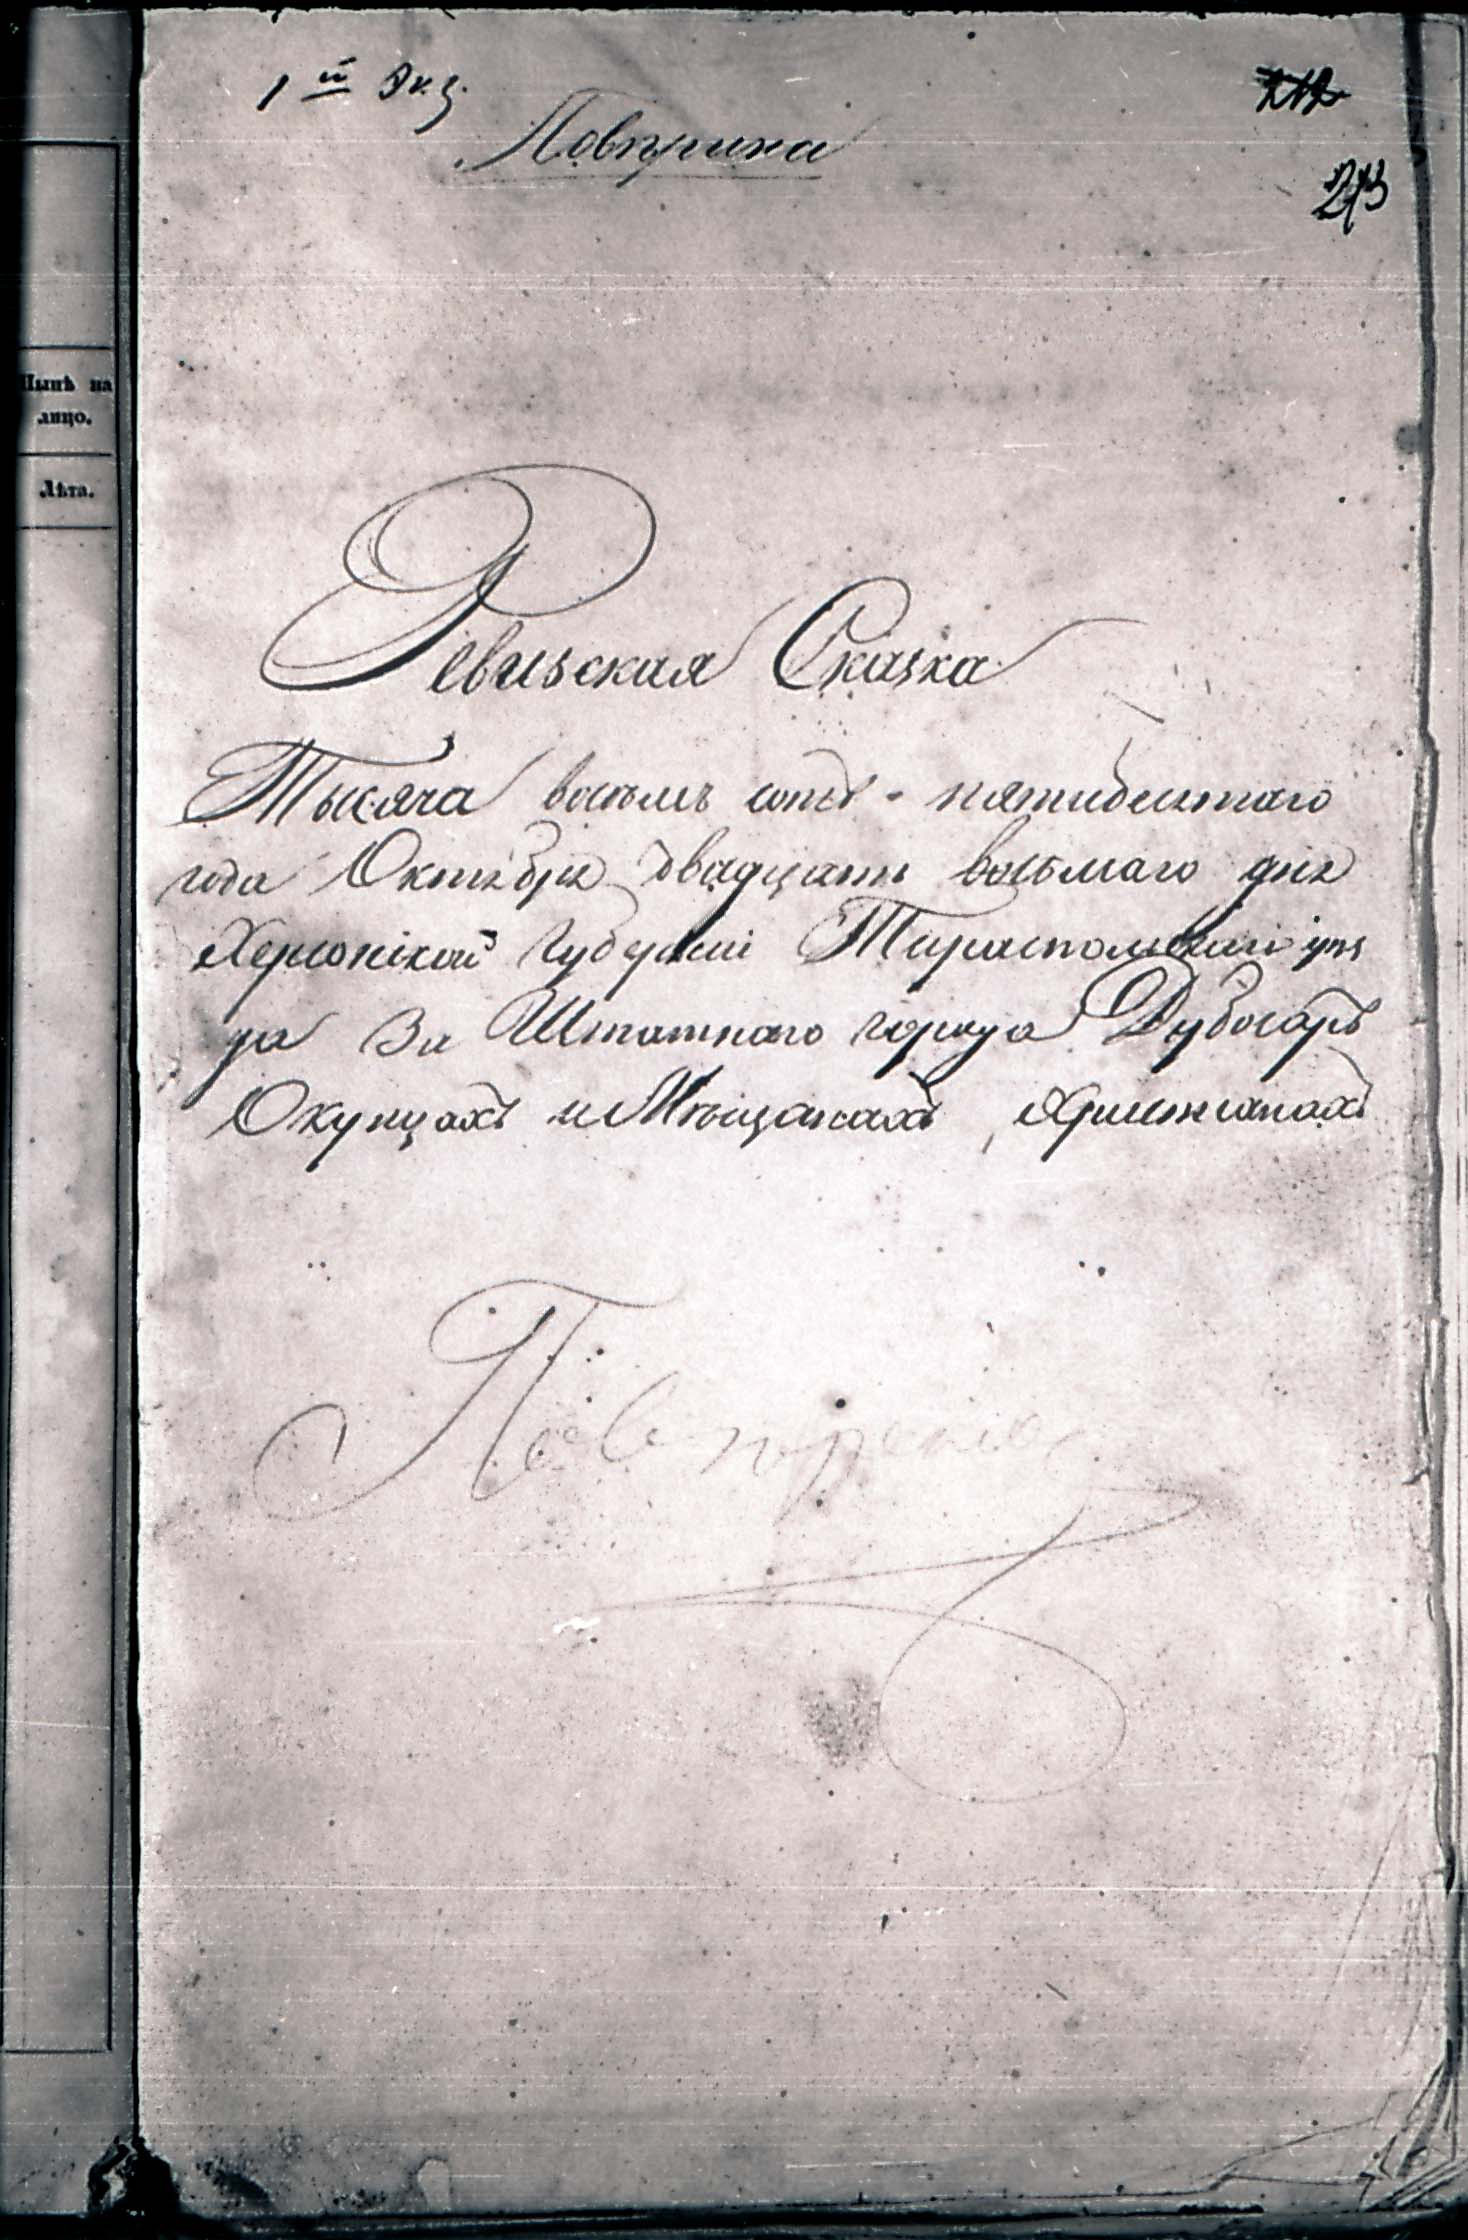 1й Экз.
Повѣрина
213
Нынѣ на
лицо.
Лѣта.
Ревизская Сказка
Тысяча восемь сотъ - пятидесятаго
года Октября двадцать восьмаго дня
Херсонской Губерніи Тираспольскаго уѣз
да За Штатнаго города Дубосаръ
О купцахъ и Мѣщанахъ, Христианахъ